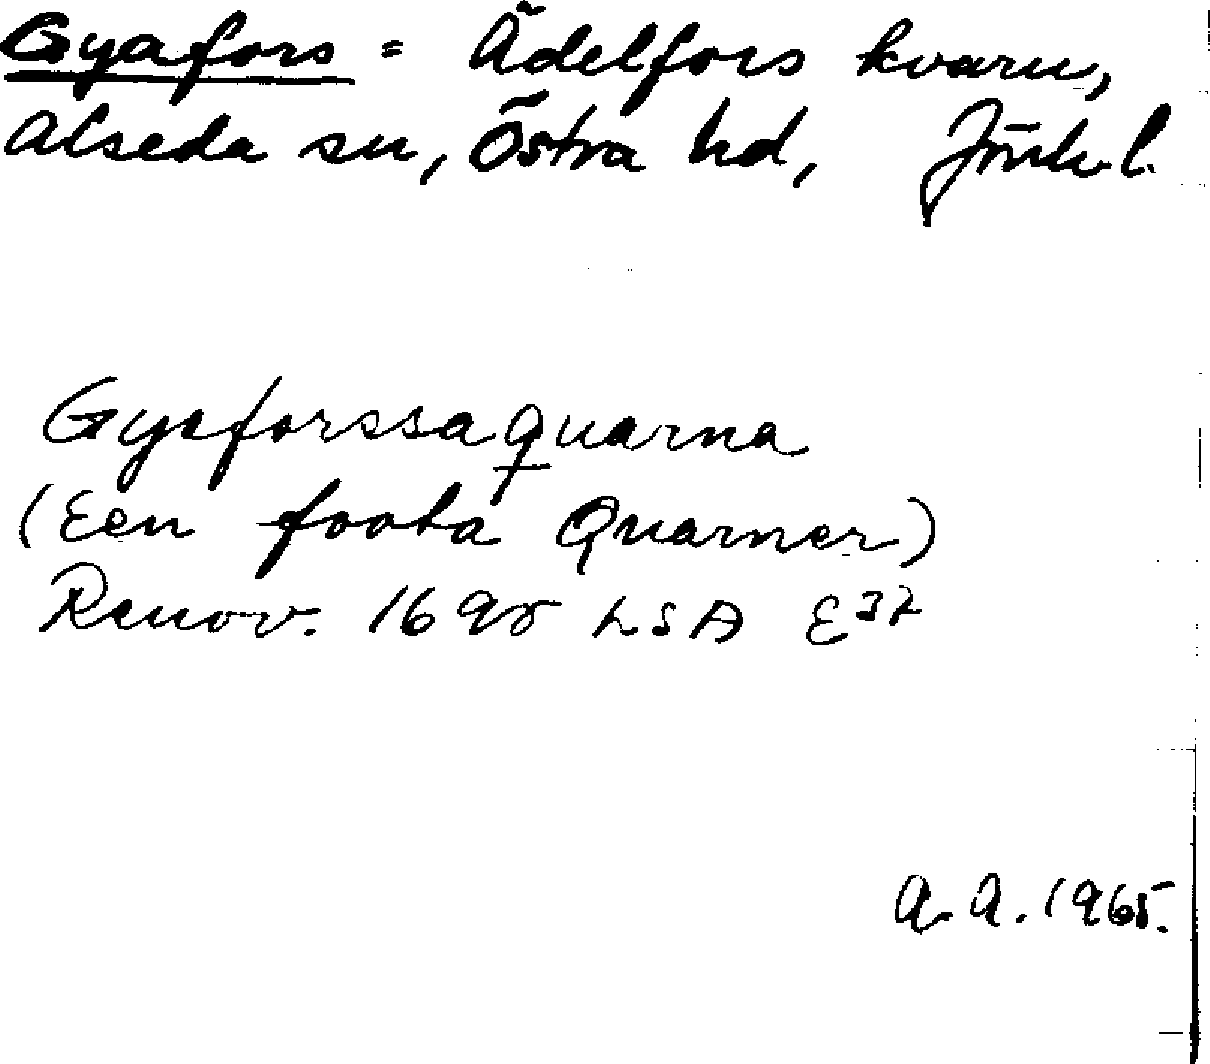 Gyafors = Ädelfors kvarn,
Alseda sn, Östra hd, Jönk. l.
Gyaforssaquarna
(Een foota Quarner)
Renov. 1698 LSA E32
A. A. 1965.